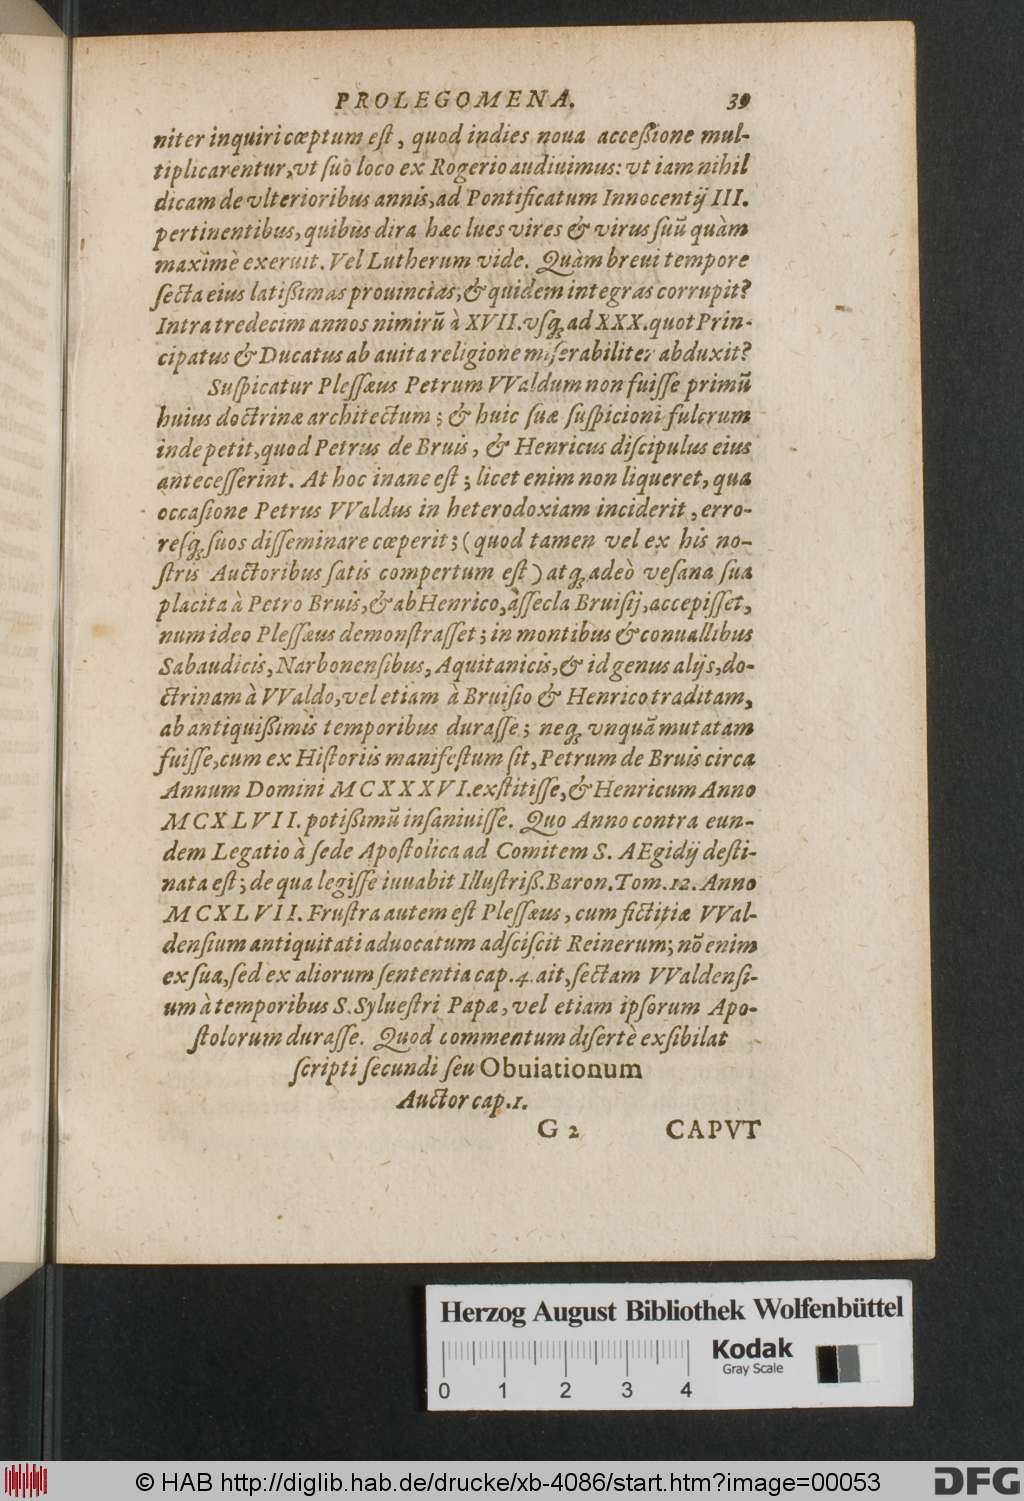 PROLEGOMENA. 39
niter inquiri cœptum eſt, quod indies noua acceßione mul-
tiplicarentur, vt ſuo loco ex Rogerio audiuimus: vt iam nihil
dicam de vlterioribus annis, ad Pontificatum Innocentij III.
pertinentibus, quibus dira hæc lues vires & virus ſuũ quàm
maximè exeruit. Vel Lutherum vide. Quàm breui tempore
ſecta eius latißimas prouincias, & quidem integras corrupit?
Intra tredecim annos nimirũ à XVII. vſq; ad XXX. quot Prin-
cipatus & Ducatus ab auita religione miſerabiliter abduxit?
Suſpicatur Pleſſæus Petrum VValdum non fuiſſe primũ
huius doctrinæ architectum; & huic ſuæ ſuſpicioni fulcrum
inde petit, quod Petrus de Bruis, & Henricus diſcipulus eius
anteceſſerint. At hoc inane eſt; licet enim non liqueret, qua
occaſione Petrus VValdus in heterodoxiam inciderit, erro-
reſq; ſuos diſſeminare cœperit; (quod tamen vel ex his no-
ſtris Auctoribus ſatis compertum eſt) atq; adeò veſana ſua
placita à Petro Bruis, & ab Henrico, aſſecla Bruiſij, accepiſſet,
num ideo Pleſſæus demonſtraſſet; in montibus & conuallibus
Sabaudicis, Narbonenſibus, Aquitanicis, & id genus alijs, do-
ctrinam à VValdo, vel etiam à Bruiſio & Henrico traditam,
ab antiquißimis temporibus duraſſe; neq; vnquã mutatam
fuiſſe, cum ex Hiſtoriis manifeſtum ſit, Petrum de Bruis circa
Annum Domini MCXXXVI. exſtitiſſe, & Henricum Anno
MCXLVII. potißimũ inſaniuiſſe. Quo Anno contra eun-
dem Legatio à ſede Apoſtolica ad Comitem S. AEgidij deſti-
nata eſt; de qua legiſſe iuuabit Illuſtriß. Baron. Tom. 12. Anno
MCXLVII. Fruſtra autem eſt Pleſſæus, cum fictitiæ VVal-
denſium antiquitati aduocatum adſciſcit Reinerum; nõ enim
ex ſua, ſed ex aliorum ſententia cap. 4. ait, ſectam VValdenſi-
um à temporibus S. Sylueſtri Papæ, vel etiam ipſorum Apo-
ſtolorum duraſſe. Quod commentum diſertè exſibilat
ſcripti ſecundi ſeu Obuiationum
Auctor cap. 1.
G 2 CAPVT
Herzog August Bibliothek Wolfenbüttel
Kodak
Gray Scale
0 1 2 3 4
© HAB http://diglib.hab.de/drucke/xb-4086/start.htm?image=00053
DFG